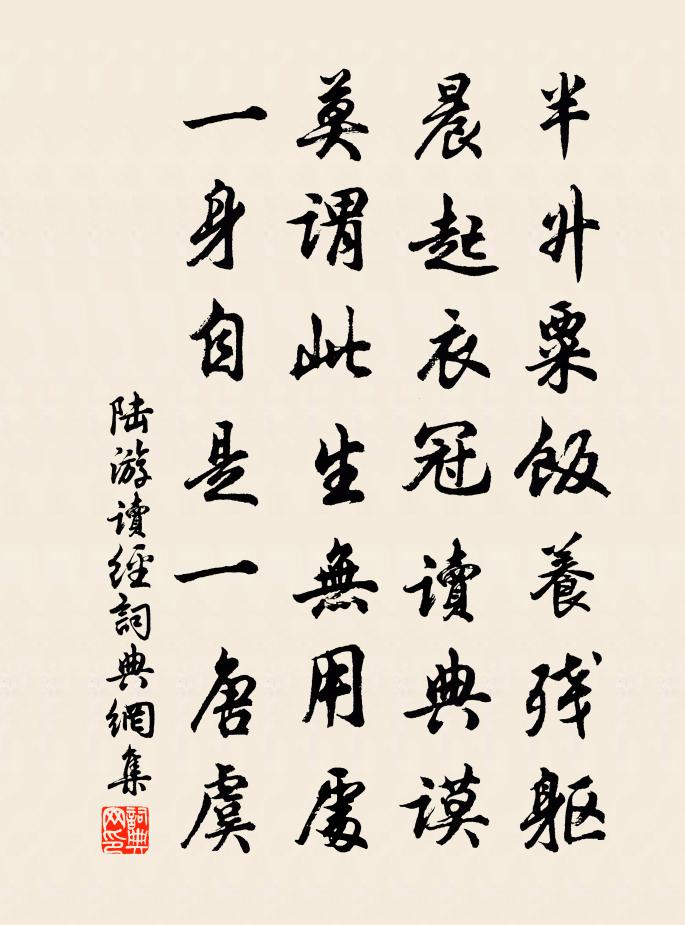 半升粟飯養殘軀
晨起衣冠讀典謨
莫謂此生無用處
一身自是一唐虞
陸游讀經詞典網集
詞典
网印